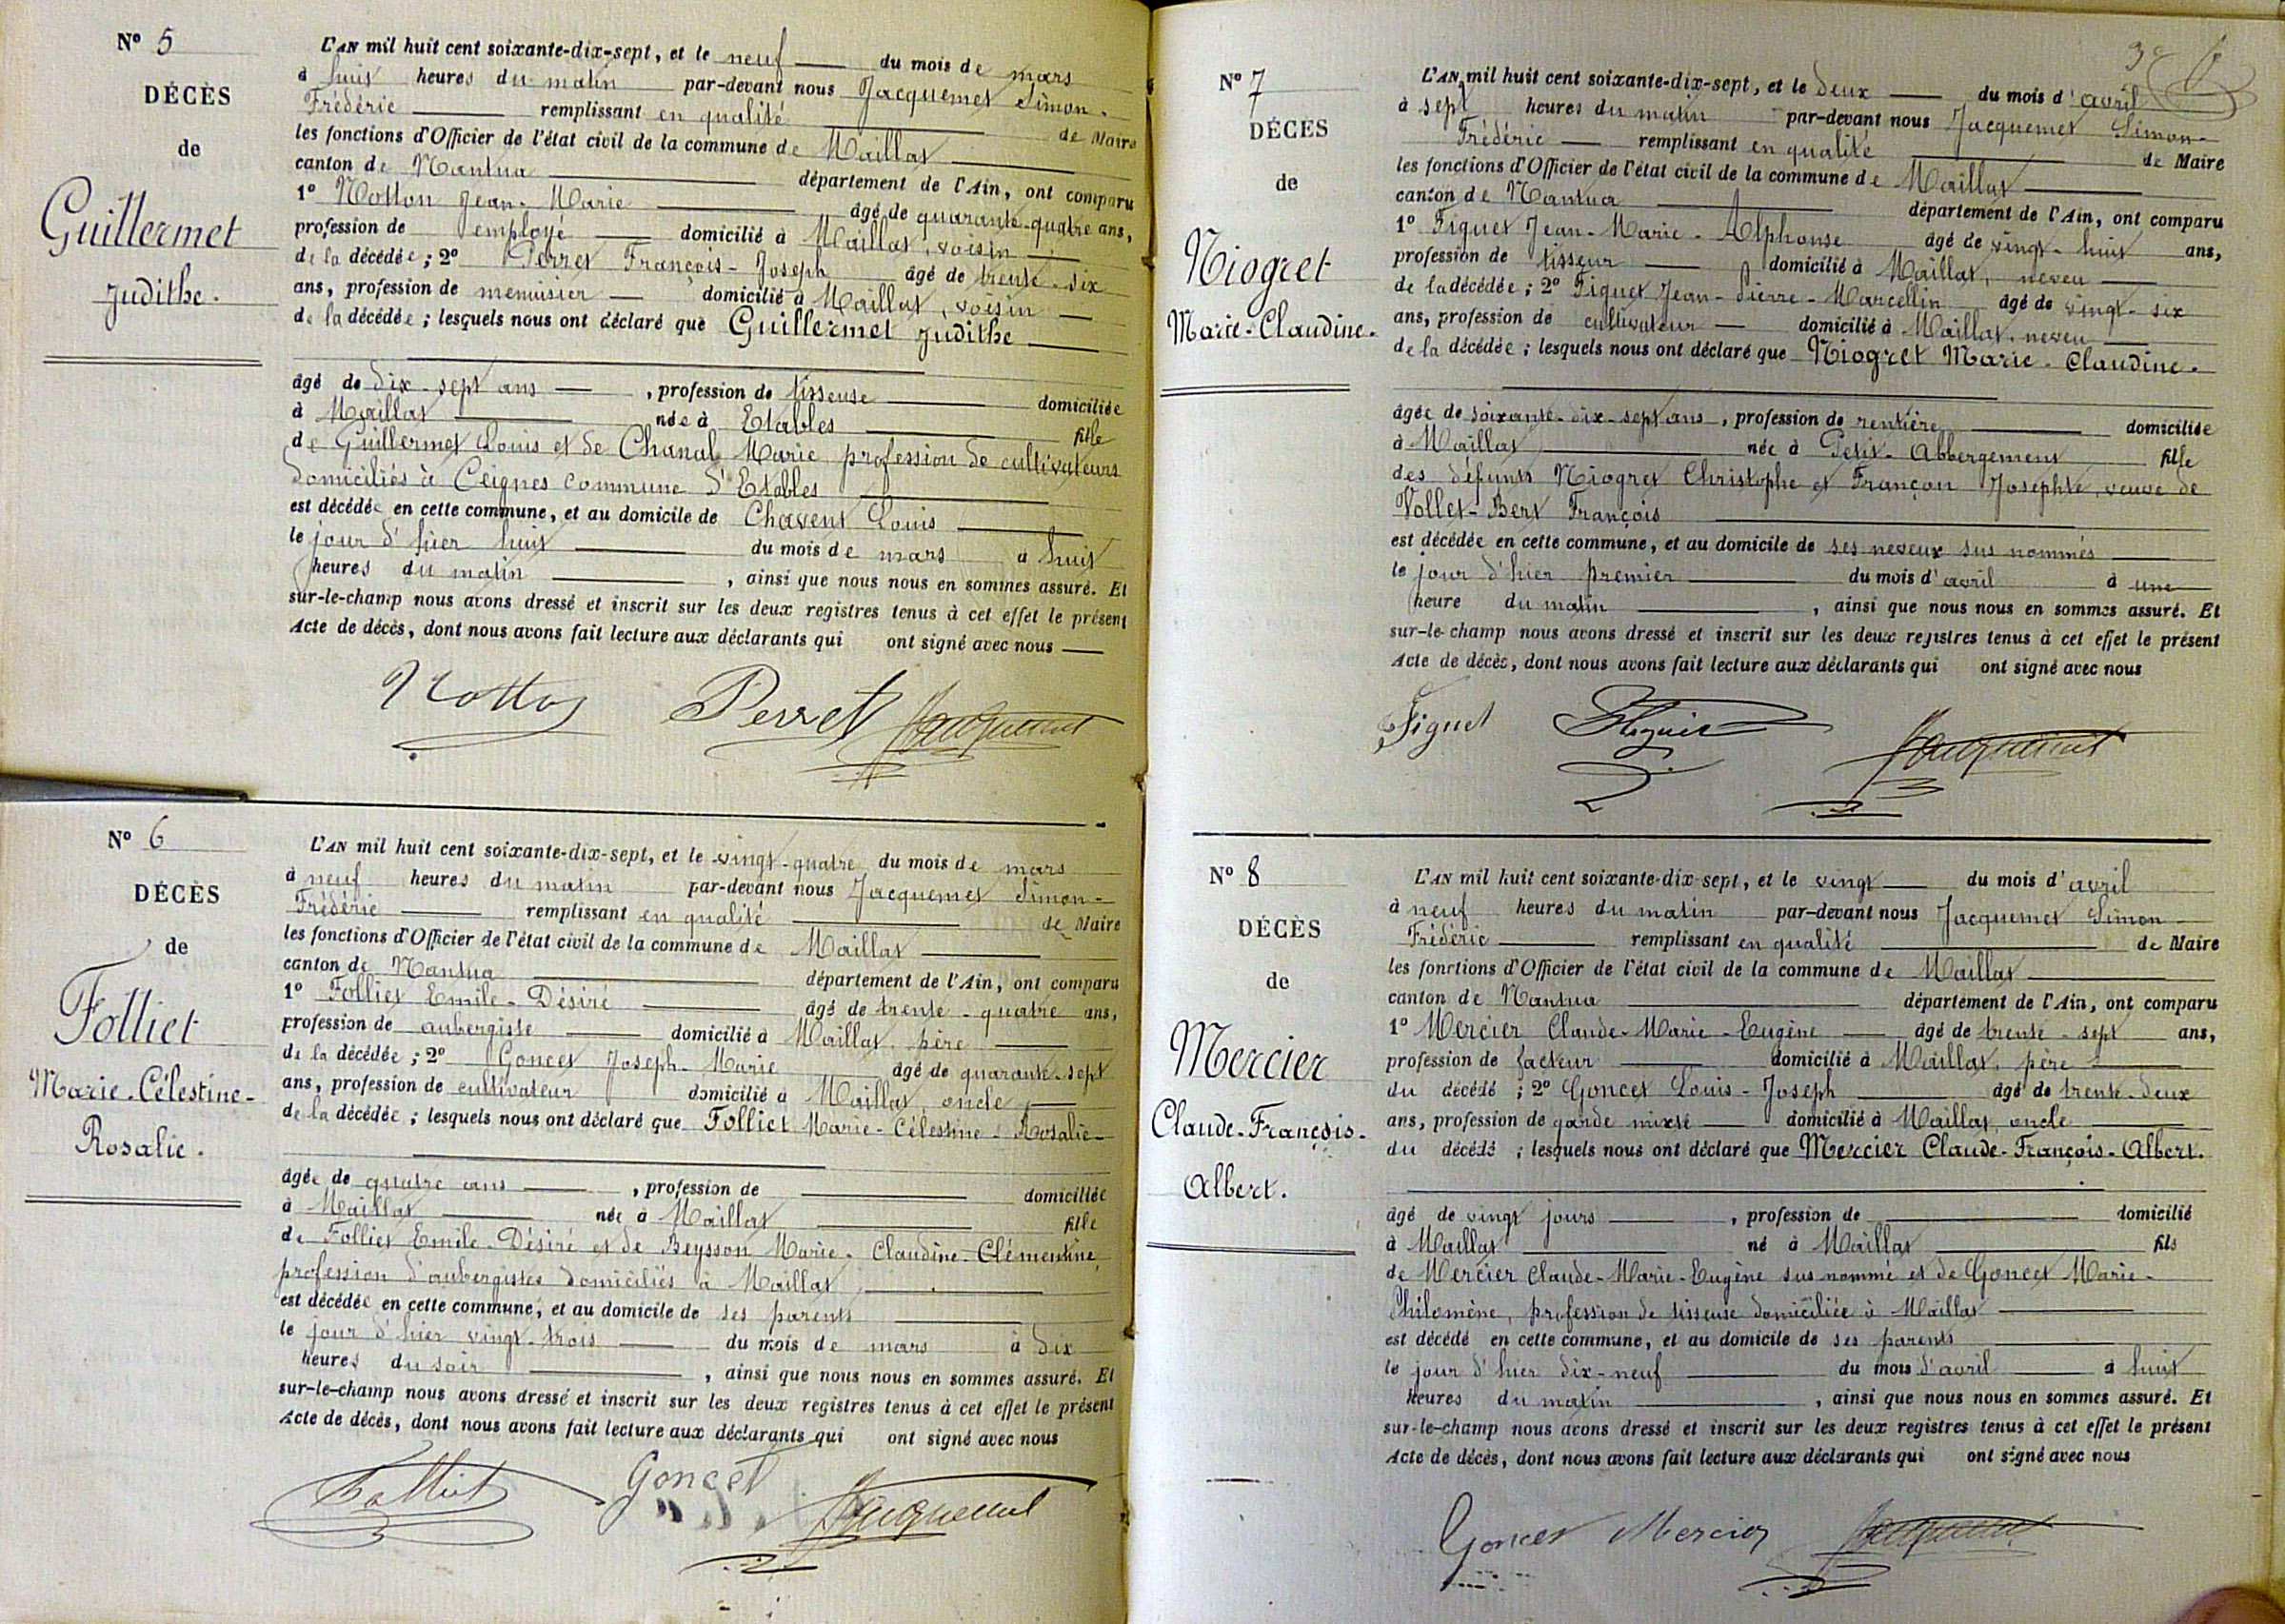 N° 5
DÉCÈS
de
Guillermet
Judithe.
L'AN mil huit cent soixante-dix-sept, et le neuf du mois de mars
à huit heures du matin par-devant nous Jacquemet Simon-
Frédéric remplissant en qualité de Maire
les fonctions d'Officier de l'état civil de la commune de Maillat
canton de Nantua département de l'Ain, ont comparu
1° Notton Jean-Marie âgé de quarante-quatre ans,
profession de employé domicilié à Maillat, voisin
de la décédée ; 2° Perret François-Joseph âgé de trente-six
ans, profession de menuisier domicilié à Maillat, voisin
de la décédée ; lesquels nous ont déclaré que Guillermet Judithe
âgé de dix-sept ans, profession de tisseuse domiciliée
à Maillat née à Etables fille
de Guillermet Louis et de Chanal Marie, profession de cultivateurs
domiciliés à Ceignes commune d'Etables
est décédée en cette commune, et au domicile de Chavent Louis
le jour d'hier huit du mois de mars à huit
heures du matin, ainsi que nous nous en sommes assuré. Et
sur-le-champ nous avons dressé et inscrit sur les deux registres tenus à cet effet le présent
Acte de décès, dont nous avons fait lecture aux déclarants qui ont signé avec nous
Notton Perret Jacquemet
N° 6
DÉCÈS
de
Folliet
Marie-Célestine-
Rosalie.
L'AN mil huit cent soixante-dix-sept, et le vingt-quatre du mois de mars
à neuf heures du matin par-devant nous Jacquemet Simon-
Frédéric remplissant en qualité de Maire
les fonctions d'Officier de l'état civil de la commune de Maillat
canton de Nantua département de l'Ain, ont comparu
1° Folliet Emile-Désiré âgé de trente-quatre ans,
profession de aubergiste domicilié à Maillat, père
de la décédée ; 2° Goncet Joseph-Marie âgé de quarante-sept
ans, profession de cultivateur domicilié à Maillat, oncle
de la décédée ; lesquels nous ont déclaré que Folliet Marie-Célestine-Rosalie
âgée de quatre ans, profession de domiciliée
à Maillat née à Maillat fille
de Folliet Emile-Désiré et de Beysson Marie-Claudine-Clémentine,
profession d'aubergistes domiciliés à Maillat,
est décédée en cette commune, et au domicile de ses parents
le jour d'hier vingt-trois du mois de mars à dix
heures du soir, ainsi que nous nous en sommes assuré. Et
sur-le-champ nous avons dressé et inscrit sur les deux registres tenus à cet effet le présent
Acte de décès, dont nous avons fait lecture aux déclarants qui ont signé avec nous
Folliet Goncet Jacquemet
3e
N° 7
DÉCÈS
de
Niogret
Marie-Claudine.
L'AN mil huit cent soixante-dix-sept, et le deux du mois d'avril
à sept heures du matin par-devant nous Jacquemet Simon-
Frédéric remplissant en qualité de Maire
les fonctions d'Officier de l'état civil de la commune de Maillat
canton de Nantua département de l'Ain, ont comparu
1° Figuet Jean-Marie-Alphonse âgé de vingt-huit ans,
profession de tisseur domicilié à Maillat, neveu
de la décédée ; 2° Figuet Jean-Pierre-Marcellin âgé de vingt-six
ans, profession de cultivateur domicilié à Maillat, neveu
de la décédée ; lesquels nous ont déclaré que Niogret Marie-Claudine.
âgée de soixante-dix-sept ans, profession de rentière domiciliée
à Maillat née à Petit-Abbergement fille
des défunts Niogret Christophe et Françon Josephte, veuve de
Vollet-Bert François
est décédée en cette commune, et au domicile de ses neveux sus nommés
le jour d'hier premier du mois d'avril à une
heure du matin, ainsi que nous nous en sommes assuré. Et
sur-le-champ nous avons dressé et inscrit sur les deux registres tenus à cet effet le présent
Acte de décès, dont nous avons fait lecture aux déclarants qui ont signé avec nous
Figuet Figuet Jacquemet
N° 8
DÉCÈS
de
Mercier
Claude-François-
Albert.
L'AN mil huit cent soixante-dix-sept, et le vingt du mois d'avril
à neuf heures du matin par-devant nous Jacquemet Simon-
Frédéric remplissant en qualité de Maire
les fonctions d'Officier de l'état civil de la commune de Maillat
canton de Nantua département de l'Ain, ont comparu
1° Mercier Claude-Marie-Eugène âgé de trente-sept ans,
profession de facteur domicilié à Maillat, père
du décédé ; 2° Goncet Louis-Joseph âgé de trente-deux
ans, profession de garde mixte domicilié à Maillat, oncle
du décédé ; lesquels nous ont déclaré que Mercier Claude-François-Albert.
âgé de vingt jours, profession de domicilié
à Maillat né à Maillat fils
de Mercier Claude-Marie-Eugène sus nommé et de Goncet Marie-
Philomène, profession de tisseuse domiciliée à Maillat
est décédé en cette commune, et au domicile de ses parents
le jour d'hier dix-neuf du mois d'avril à huit
heures du matin, ainsi que nous nous en sommes assuré. Et
sur-le-champ nous avons dressé et inscrit sur les deux registres tenus à cet effet le présent
Acte de décès, dont nous avons fait lecture aux déclarants qui ont signé avec nous
Goncet Mercier Jacquemet